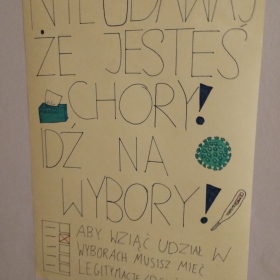 NIE UDAWAJ
ŻE JESTEŚ
CHORY!
IDŹ NA
WYBORY!
ABY WZIĄĆ UDZIAŁ W
WYBORACH MUSISZ MIEĆ
LEGITYMACJĘ